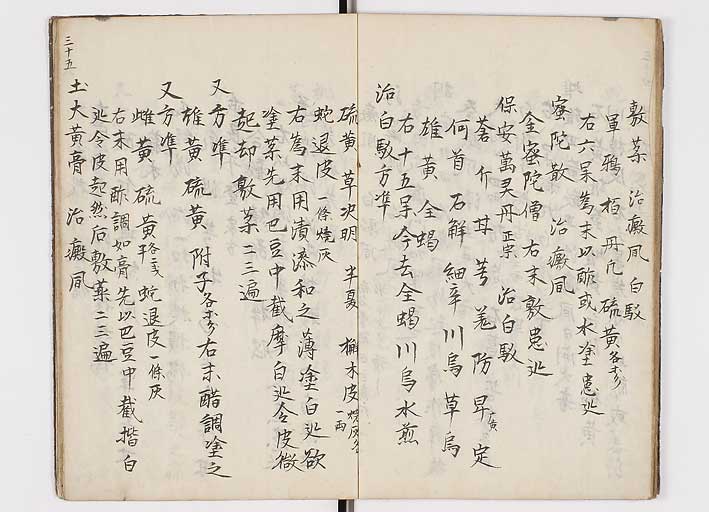 敷薬 治癜風 白駁
軍 鴉 栢 丹 凡 硫黄各等分
右六味為末以酢或水塗患処
蜜陀散 治癜風
全蜜陀僧 右末敷患処
保安萬灵丹正宗 治白駁
蒼 介 甘 芎 羌 防 广黄 定
何首 石斛 細辛 川烏 草烏
雄黄 全蝎
右十五味今去全蝎川烏水煎
治白駁方準
硫黄 草决明 半夏 槲木皮焼灰各一両
蛇退皮一條焼灰
右為末用漬漆和之薄塗白処欲
塗薬先用巴豆中截摩白処令皮微
起却敷薬二三遍
又方準
雄黄 硫黄 附子各等分右末醋調塗之
又方準
雌黄 硫黄 蛇退皮一條灰
右末用酢調如膏先以巴豆中截揩白
処令皮起然后敷薬二三遍
土大黄膏 治癜風
三十五